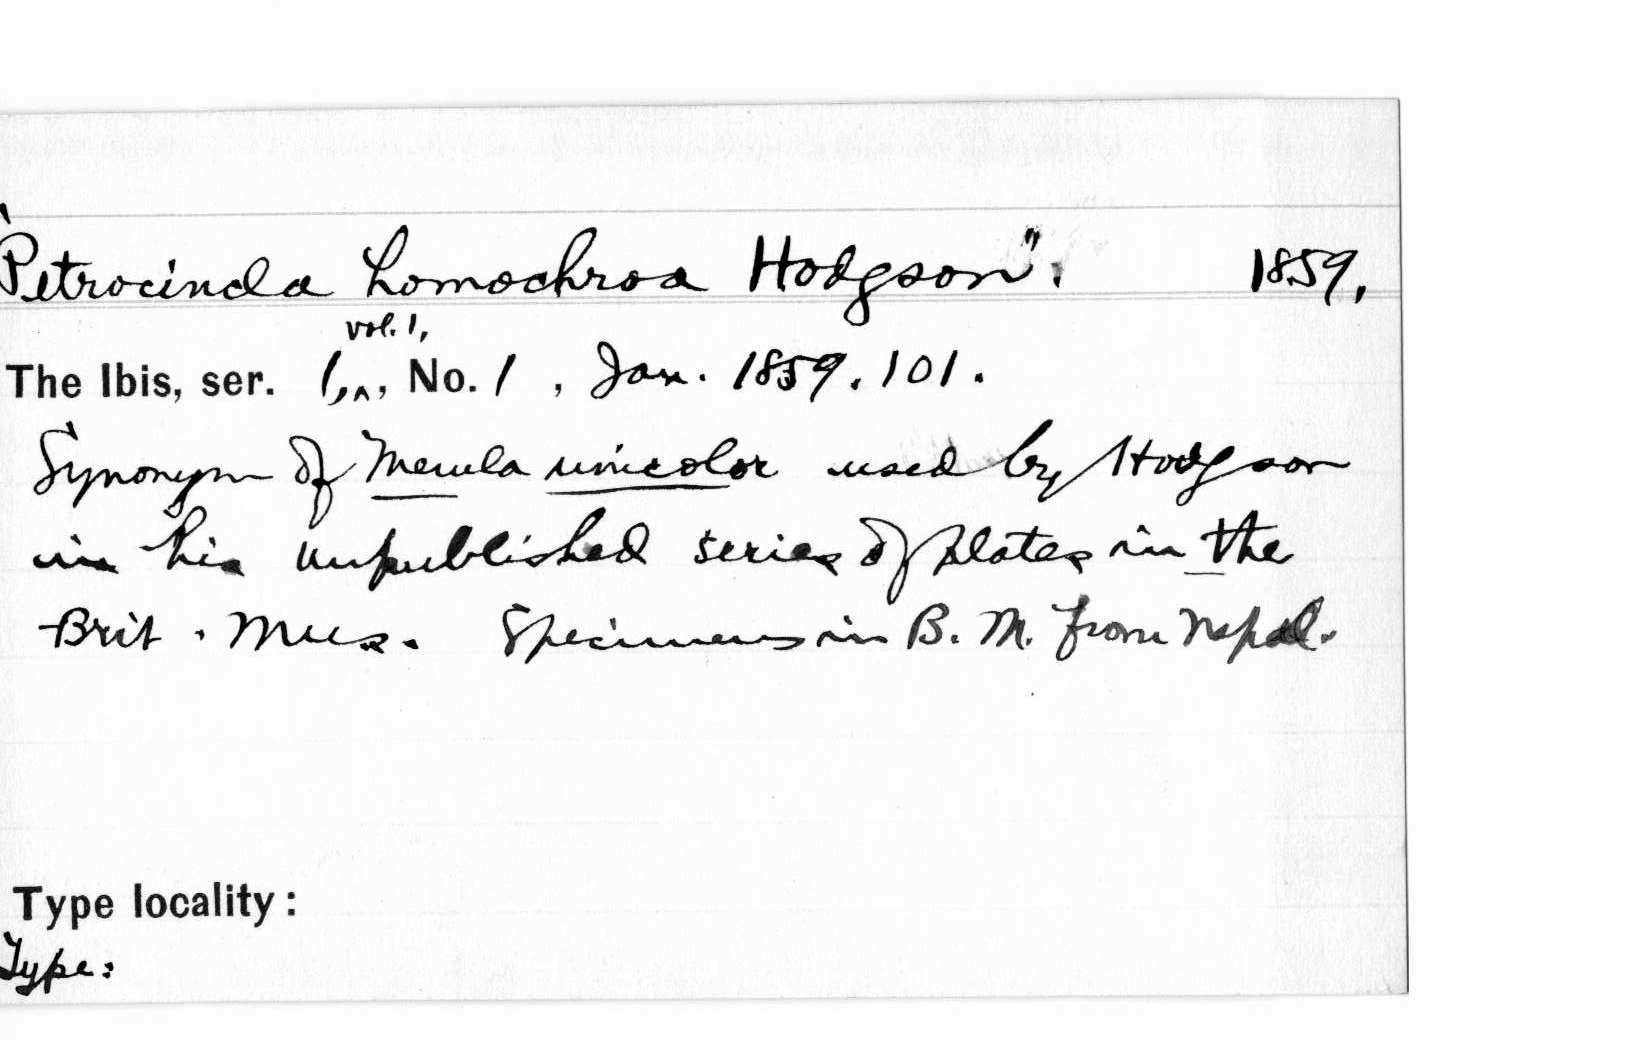 "Petrocincla homochroa Hodgson". 1859.
The Ibis, ser. 1, vol. 1, No. 1, Jan. 1859. 101.
Synonym of Merula unicolor used by Hodgson
in his unpublished series of plates in the
Brit. Mus. Specimens in B. M. from Nepal.
Type locality:
Type: